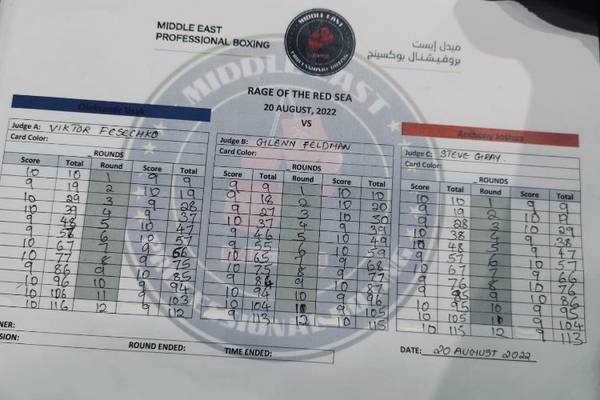 MIDDLE EAST
PROFESSIONAL BOXING
MIDDLE EAST
PROFESSIONAL BOXING
ميدل إيست
بروفيشنال بوكسينج
RAGE OF THE RED SEA
20 AUGUST, 2022
VS
Oleksandr Usyk
Judge A: VIKTOR FESECHKO
Card Color:
ROUNDS
Score Total Round Score Total
10 10 1 9 9
9 19 2 10 19
10 29 3 9 28
10 39 4 9 37
9 48 5 10 47
10 58 6 10 57
9 67 7 9 66
10 77 8 9 75
9 86 9 10 85
10 96 10 9 94
10 106 11 9 103
10 116 12 9 112
Judge B: GLENN FELDMAN
Card Color:
ROUNDS
Score Total Round Score Total
9 9 1 10 10
9 18 2 10 20
9 27 3 10 30
10 37 4 9 39
9 46 5 10 49
9 55 6 10 59
10 65 7 9 68
10 75 8 9 77
9 84 9 10 87
10 94 10 9 96
10 104 11 9 105
9 113 12 10 115
Anthony Joshua
Judge C: STEVE GRAY
Card Color:
ROUNDS
Score Total Round Score Total
10 10 1 9 9
9 19 2 10 19
9 28 3 10 29
10 38 4 9 38
10 48 5 9 47
9 57 6 10 57
10 67 7 9 66
9 76 8 10 76
9 85 9 10 86
10 95 10 9 95
10 105 11 9 104
10 115 12 9 113
NER:
SION: ROUND ENDED: TIME ENDED:
DATE: 20 AUGUST 2022
MIDDLE EAST
PROFESSIONAL BOXING